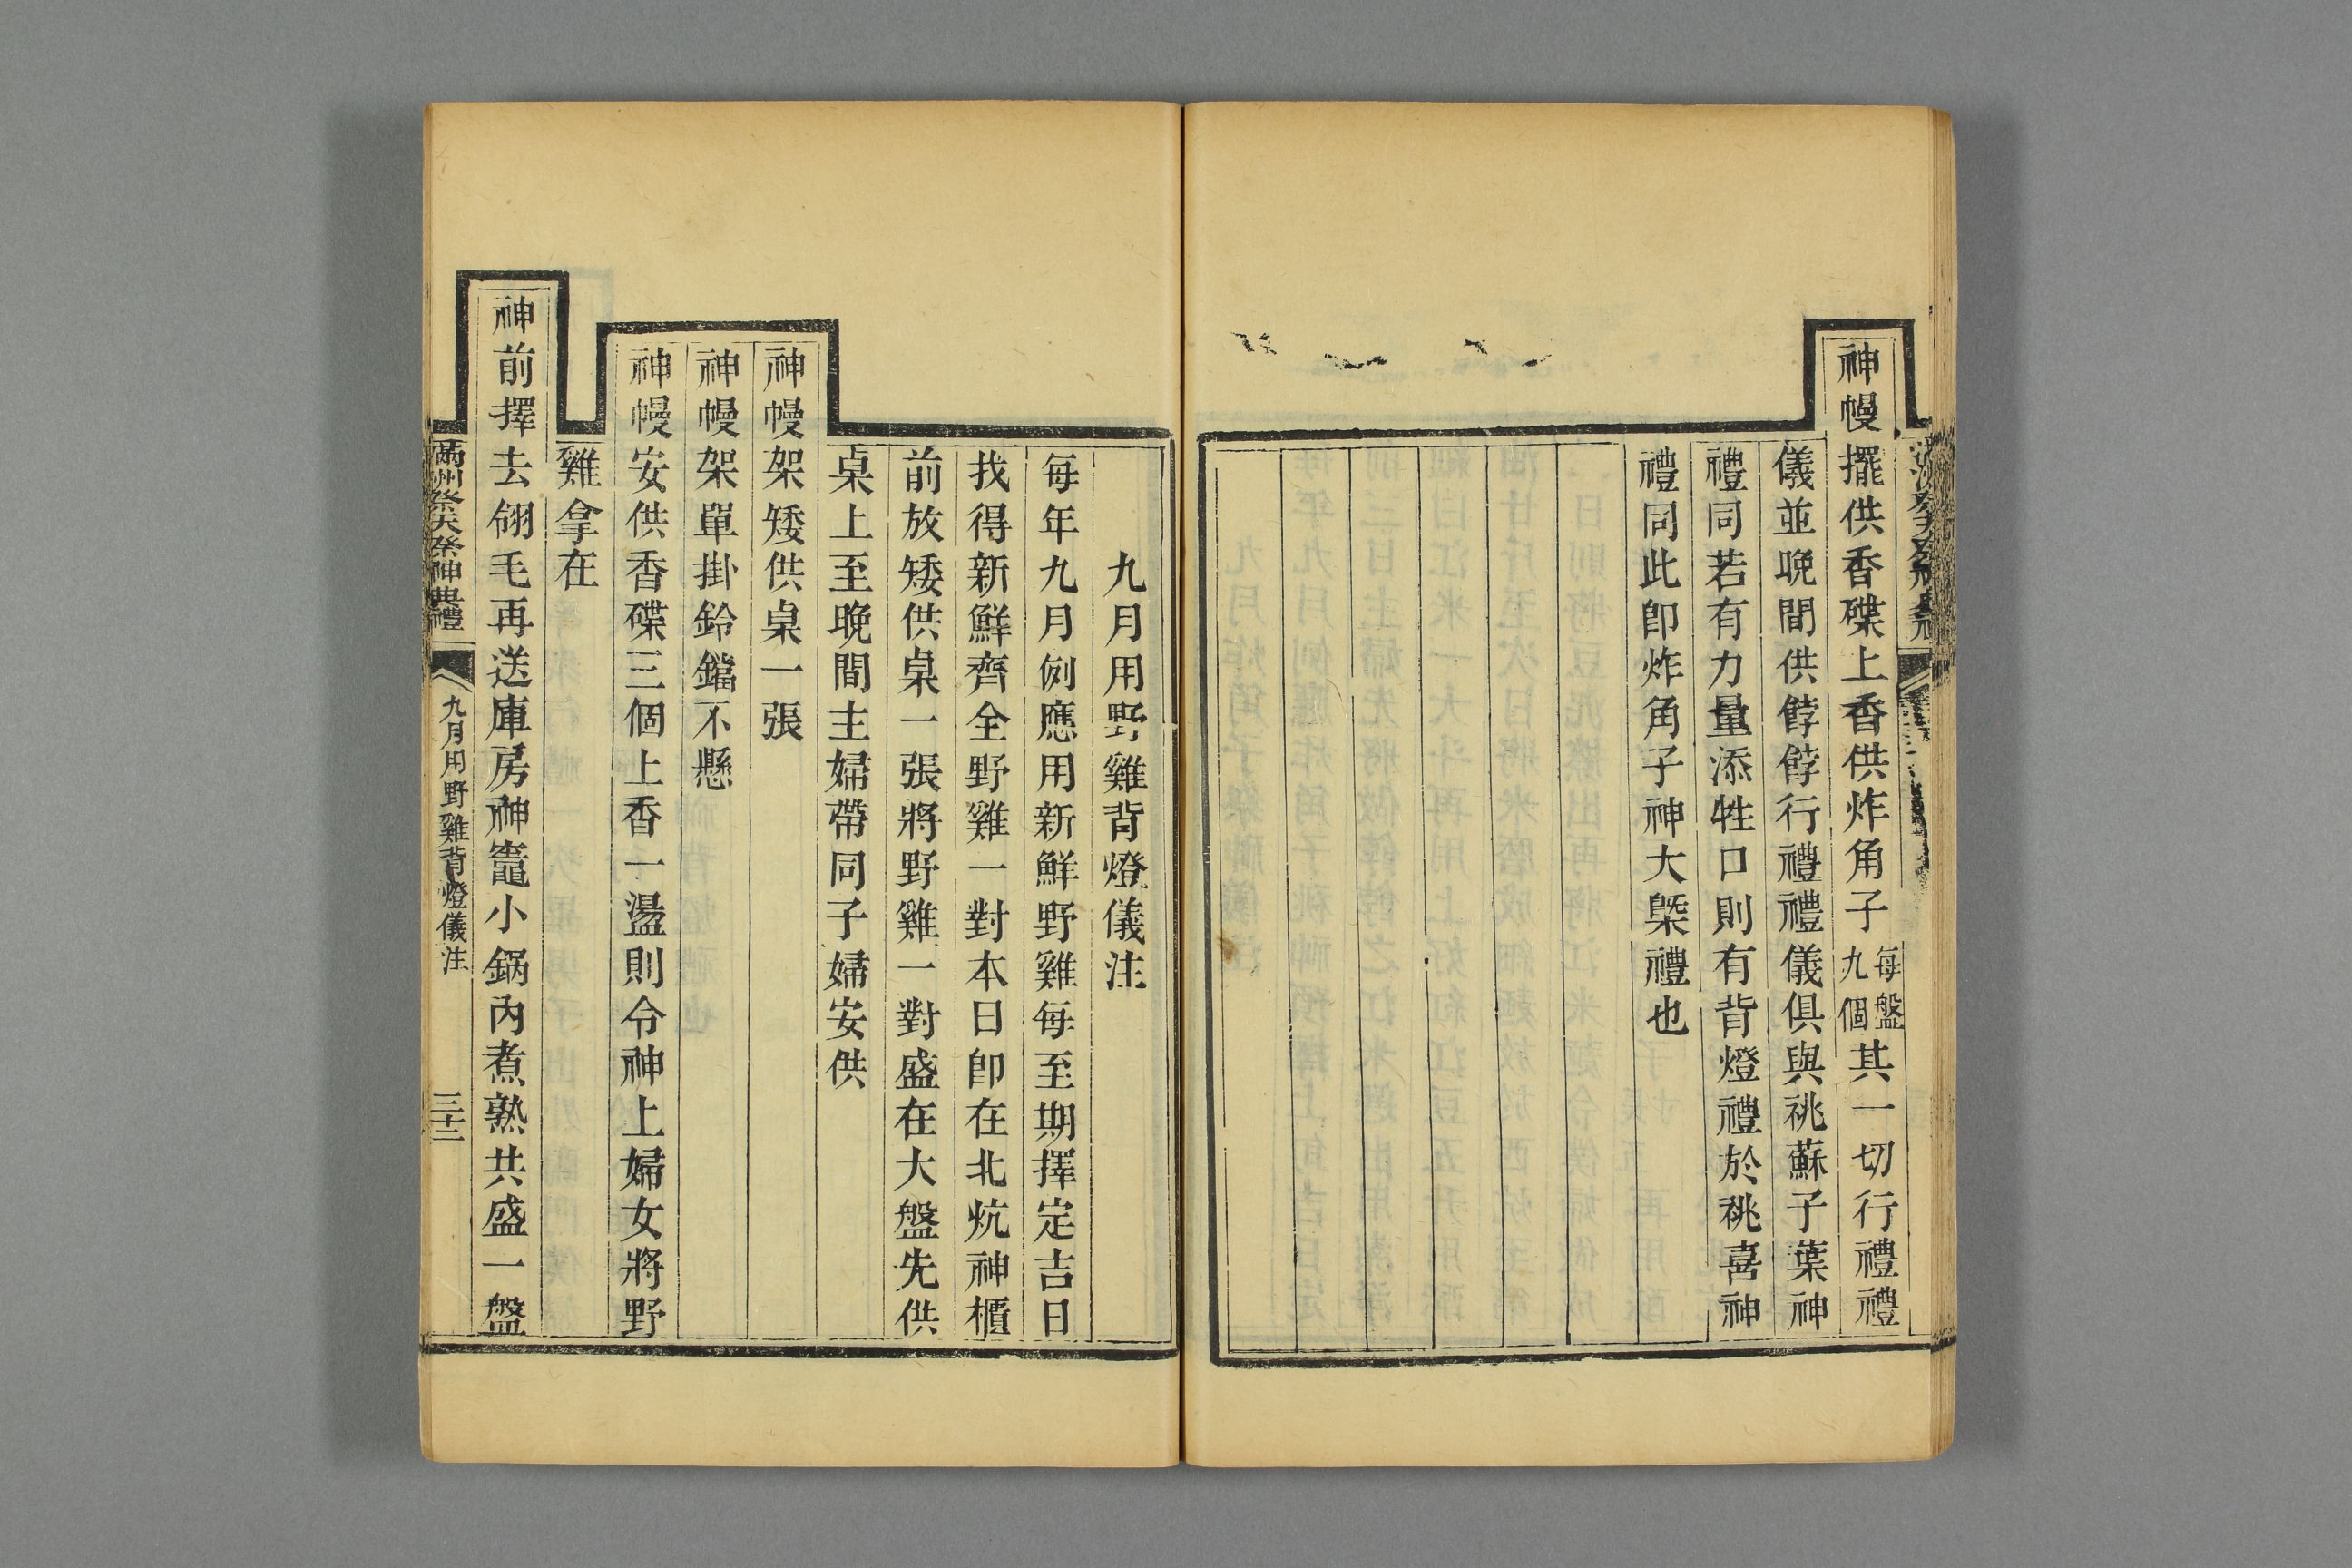 神幔擺供香碟上香供炸角子每盤九個其一切行禮禮
儀並晚間供餑餑行禮禮儀俱與祧蘇子葉神
禮同若有力量添牲口則有背燈禮於祧喜神
禮同此卽炸角子神大槩禮也
九月用野雞背燈儀注
每年九月例應用新鮮野雞每至期擇定吉日
找得新鮮齊全野雞一對本日卽在北炕神櫃
前放矮供桌一張將野雞一對盛在大盤先供
桌上至晚間主婦帶同子婦安供
神幔架矮供桌一張
神幔架單掛鈴鐺不懸
神幔安供香碟三個上香一盪則令神上婦女將野
雞拿在
神前擇去翎毛再送庫房神竈小鍋內煮熟共盛一盤
滿州祭天祭神典禮
九月用野雞背燈儀注
三十二